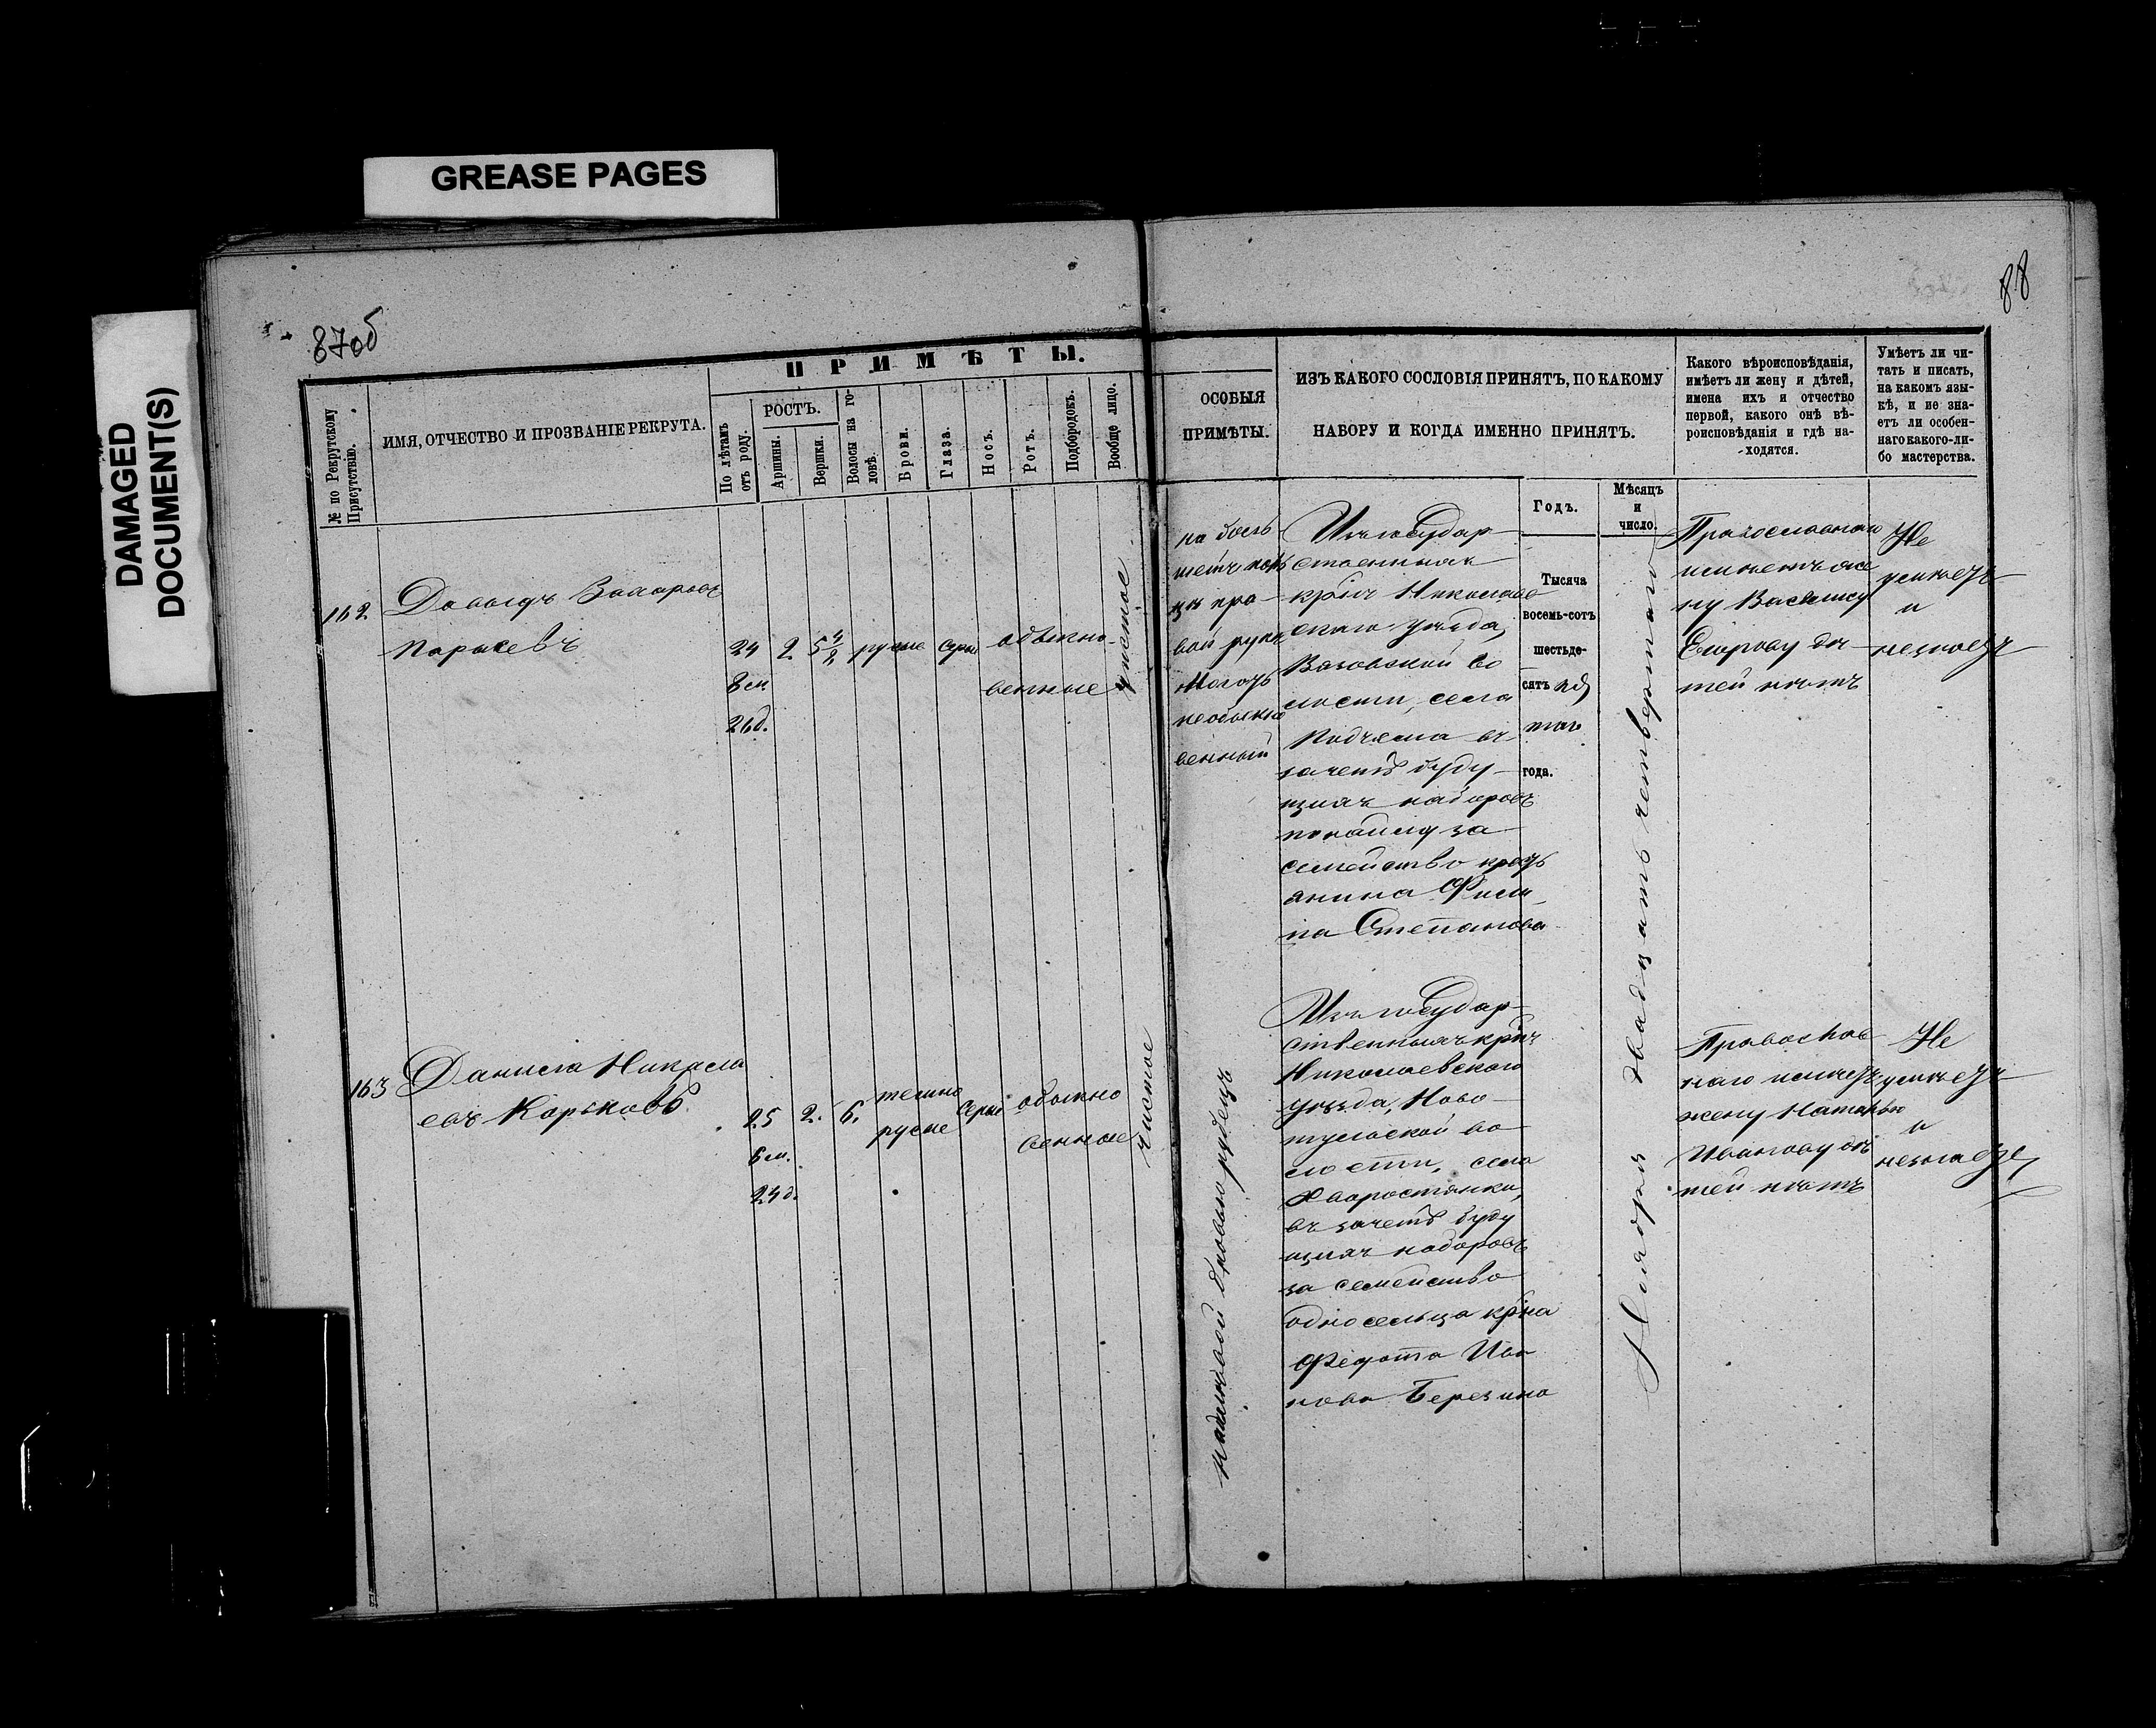 GREASE PAGES
DAMAGED
DOCUMENT(S)
87об
88
ПРИМѢТЫ.
№ по Рекрутскому
Присутствію.
ИМЯ, ОТЧЕСТВО И ПРОЗВАНІЕ РЕКРУТА.
По лѣтамъ
отъ роду.
РОСТЪ.
Аршины.
Вершки.
Волосы на го-
ловѣ.
Брови.
Глаза.
Носъ.
Ротъ.
Подбородокъ.
Вообще лицо.
ОСОБЫЯ
ПРИМѢТЫ.
ИЗЪ КАКОГО СОСЛОВІЯ ПРИНЯТЪ, ПО КАКОМУ
НАБОРУ И КОГДА ИМЕННО ПРИНЯТЪ.
Годъ.
Мѣсяцъ
и
число.
Какого вѣроисповѣданія,
имѣетъ ли жену и дѣтей,
имена ихъ и отчество
первой, какого онѣ вѣ-
роисповѣданія и гдѣ на-
ходятся.
Умѣетъ ли чи-
тать и писать,
на какомъ язы-
кѣ, и не зна-
етъ ли особен-
наго какого-ли-
бо мастерства.
162
Давыдъ Захаровъ
24
8 м.
26 д.
2
5 4/2
русые
серые
обыкно-
венные
чистое
вой руки
необыкно
венный
Изъ Государ-
ственныхъ
крln Николаев
скаго уѣзда,
Вязовской во
лости, села
Подъема въ
зачетъ буду-
щихъ наборовъ
по найму за
семейство крест
янина Филип
па Степанова
Тысяча
восемь-сотъ
шестьде-
сятъ пя
таго
года.
Ноября двадцать четвертаго
Православнаго
имѣетъ же
ну Василису
Егорову дѣ
тей нѣтъ
Не
умѣетъ
и
незнаетъ
163
Данила Никола
евъ Корьковъ
25
6 м.
24 д.
2.
6.
темно
русые
серые
обыкно
венные
чистое
рубецъ
Изъ Государ-
ственныхъ крln
Николаевскаго
уѣзда, Ново-
тульской во-
лости, села
Хворостянки,
въ зачетъ буду
щихъ наборовъ
за семейство
односельца крна
Федота Ива
нова Березина
Православ
наго имѣетъ
жену Наталью
Иванову дѣ
тей нѣтъ
Не
умѣетъ
и
незнаетъ